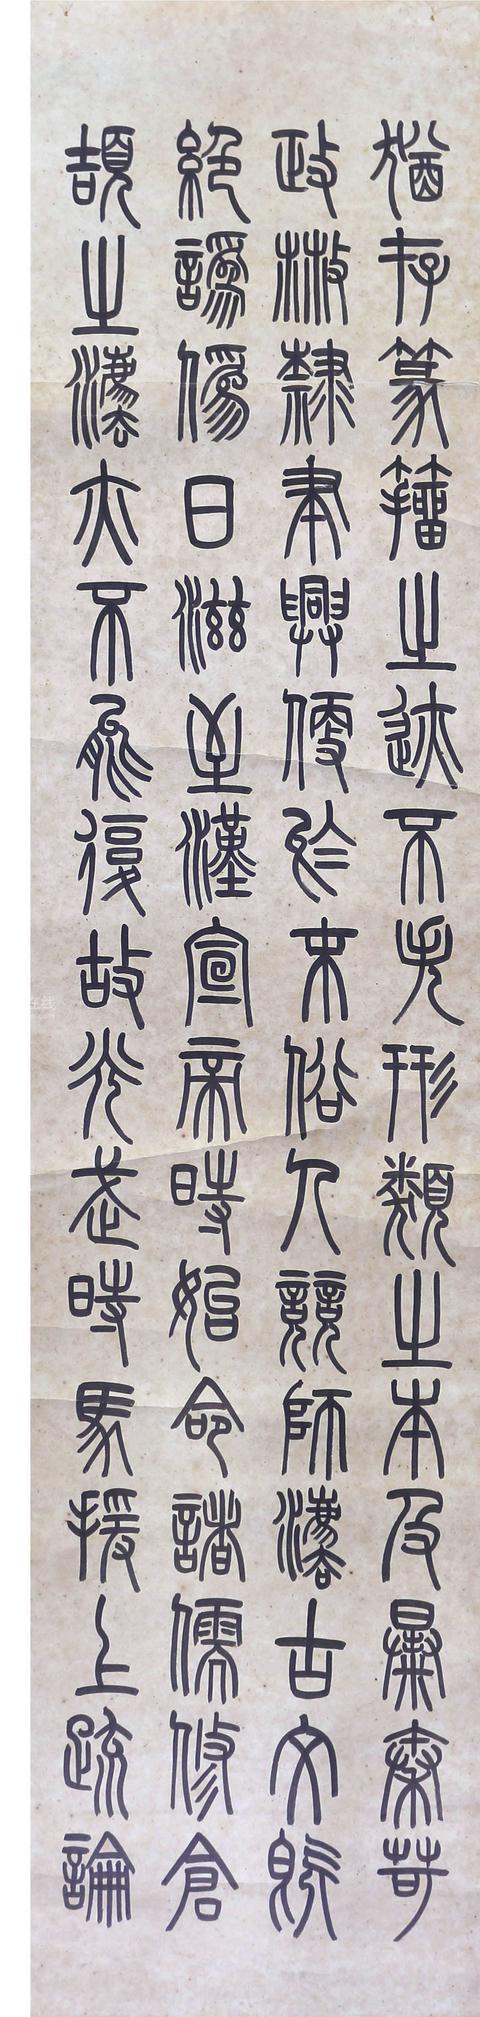 猶存篆籀之迹不失形類之本及暴秦苛
政散隸聿興便於末俗人競師灋古文既
絕譌僞日滋至漢宣帝時始命諸儒修倉
頡之灋亦不能復故光武時馬援上疏論